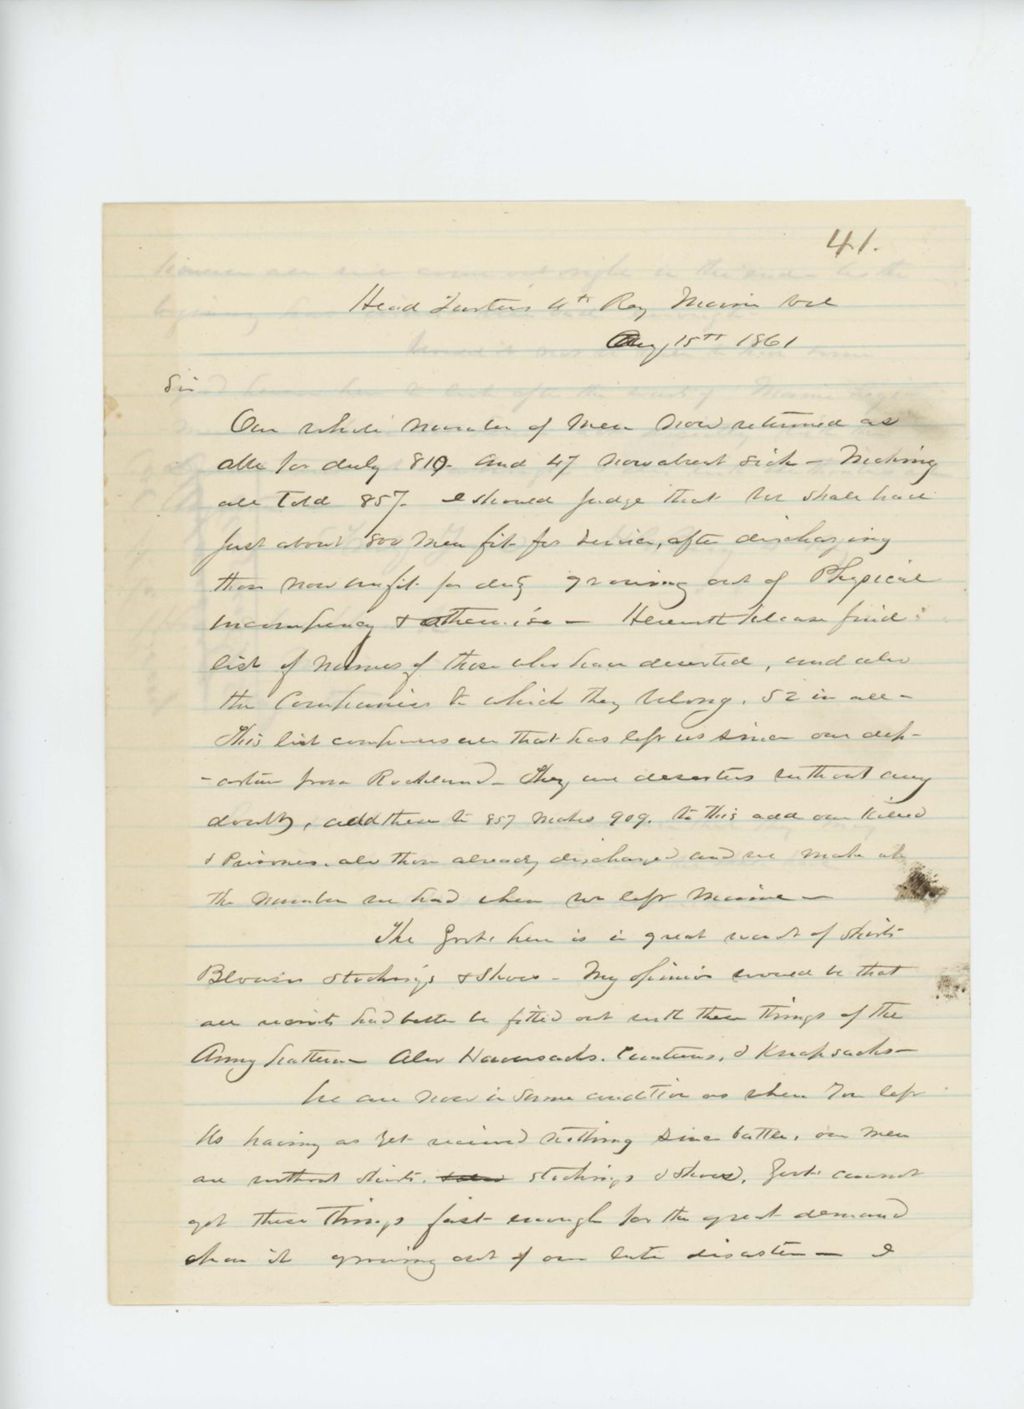 41.
Head Quarters 4th Reg Maine Vol
Aug 15th 1861
Sir
Our whole number of men now returned as
able for duty 810. and 47 now absent sick - Making
all told 857. I should judge that we shall have
just about 800 men fit for service, after discharging
those now unfit for duty growing out of Physical
incompetency & otherwise - Herewith please find
list of names of those who have deserted, and also
the Companies to which they belong. 52 in all -
This list comprises all that has left us since our dep-
-arture from Rockland - They are deserters without any
doubt, add these to 857 makes 909. to this add our Killed
& Prisoners. also those already discharged and we make
the number we had when we left Maine -
The Govt. here is in great want of shirts
Blouses stockings & shoes - My opinion would be that
all recruits had better be fitted out with these things of the
Army pattern - Also Haversacks. Canteens, & Knapsacks -
We are now in same condition as when you left
us having as yet received nothing since battle, our men
are without shirts, stockings & shoes, Govt. cannot
get these things fast enough for the great demand
upon it growing out of our late disaster - I